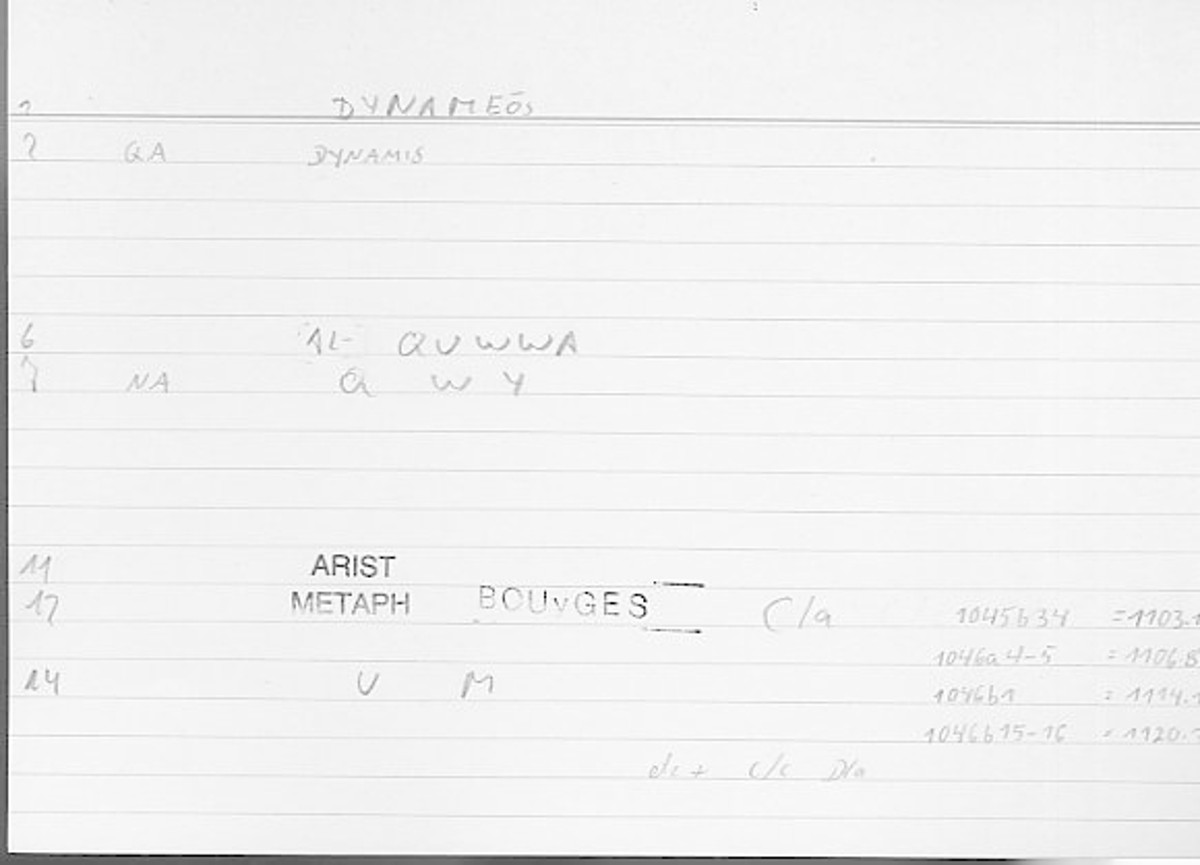 1 DYNAMEŌS
2 GA DYNAMIS
6 AL- QUWWA
7 NA Q W Y
11 ARIST
12 METAPH BOUYGES C/a 1045b34 =1103.1
1046a4-5 =1106.8
14 U M 1046b1 =1114.1
1046b15-16 =1120.
C/c D/a